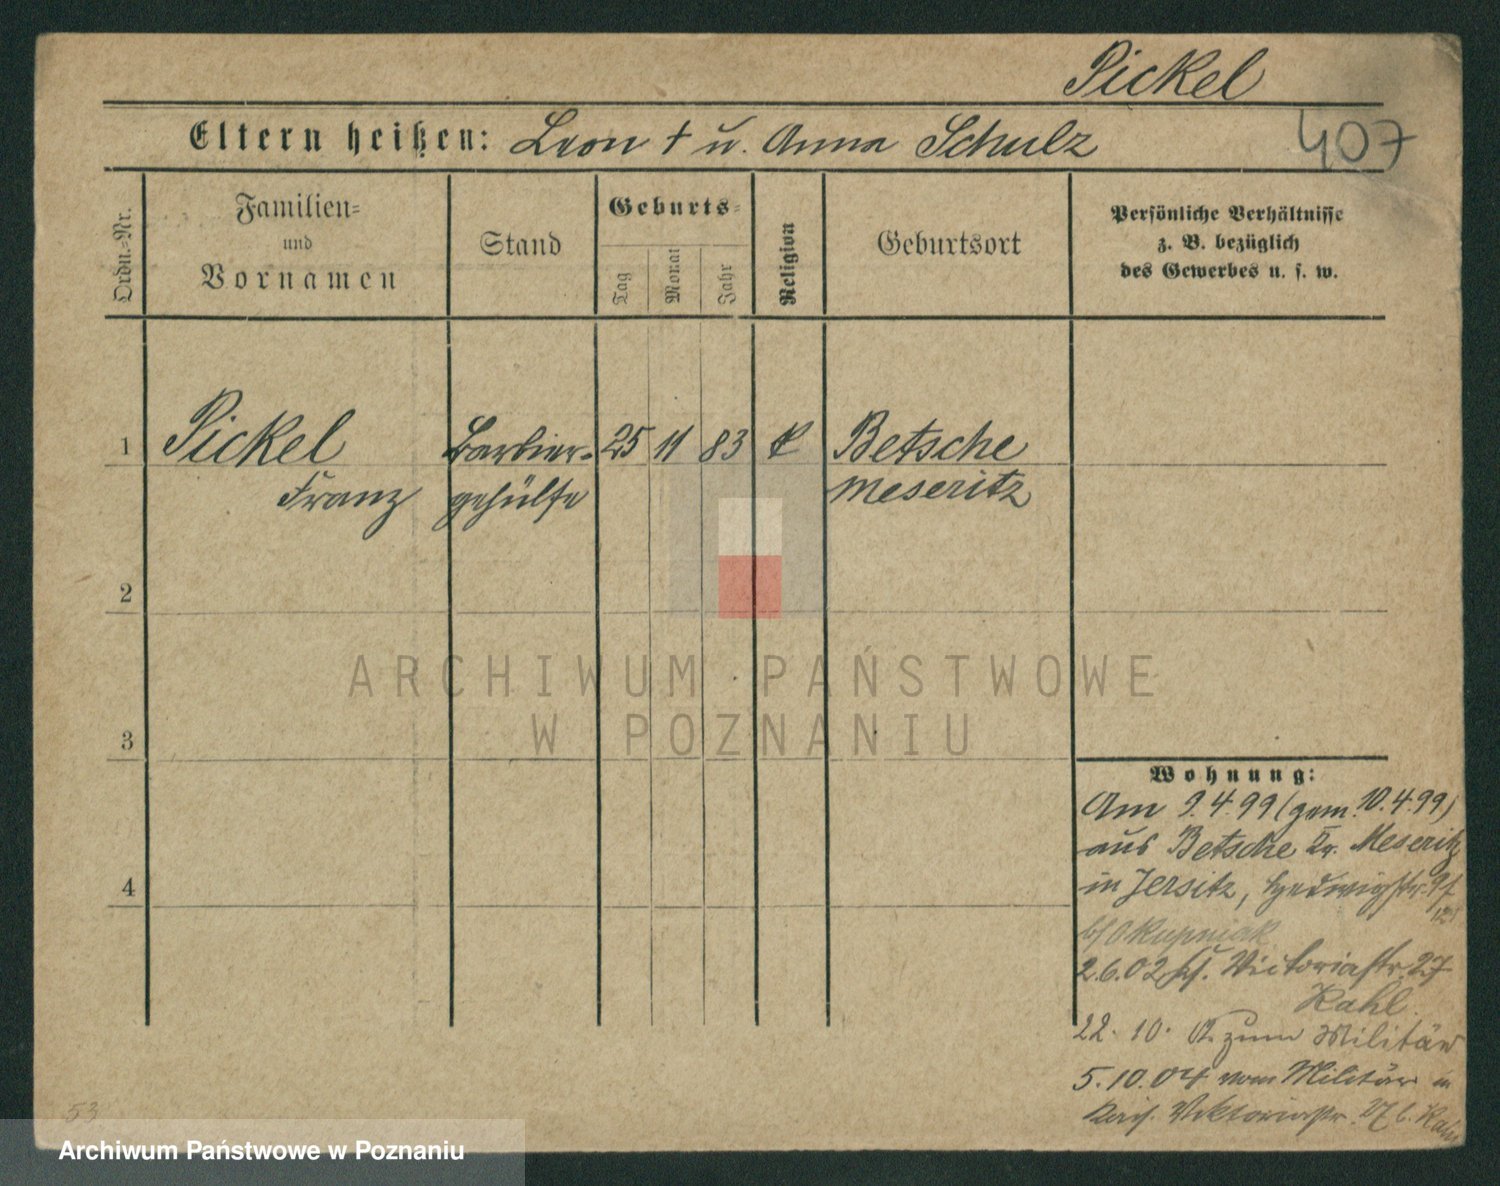 Pickel
407
Eltern heißen: Leon † u. Anna Schulz
Ordn.-Nr.
Familien-
und
Vornamen
Stand
Geburts-
Tag
Monat
Jahr
Religion
Geburtsort
Persönliche Verhältnisse
z. B. bezüglich
des Gewerbes u. s. w.
1 Pickel Barbier- 25 11 83 k Betsche
Franz gehülfe Meseritz
2
3
4
Wohnung:
Am 9.4.99 (gem. 10.4.99)
aus Betsche Kr. Meseritz
in Jersitz, Hedwigstr. 9
b/ Skupniak
2.6.02 Victoriastr. 27
Kahl.
22. 10. zum Militär
5.10.04 vom Militär in
Viktoriastr. 27 b. Kahl
53
ARCHIWUM PAŃSTWOWE
W POZNANIU
Archiwum Państwowe w Poznaniu